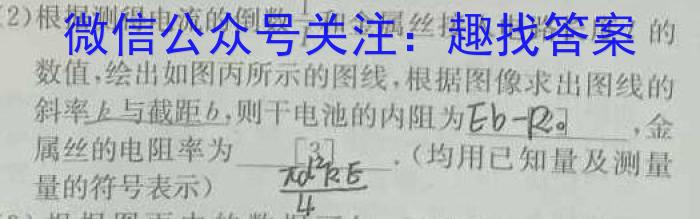 (2)根据测得电流的倒数 属丝接 的
微信公众号关注：趣找答案
数值,绘出如图丙所示的图线,根据图像求出图线的
斜率k与截距b,则干电池的内阻为Eb-R₀,金
属丝的电阻率为[3] πd²kE/4.(均用已知量及测量
量的符号表示)